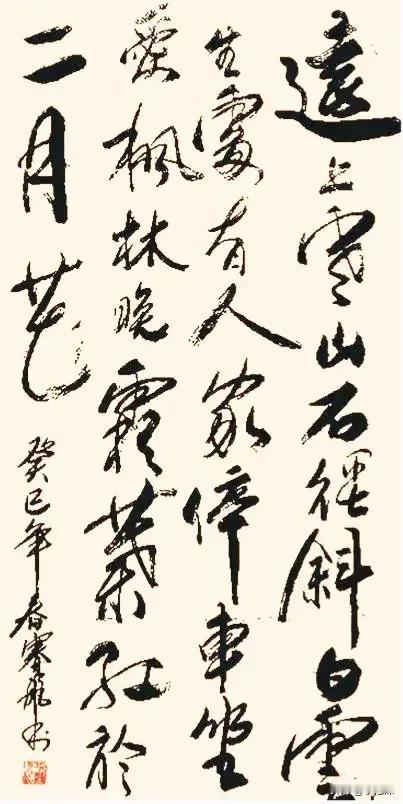 遠上寒山石徑斜白雲
生處有人家停車坐
愛楓林晚霜葉紅於
二月花
癸巳年春寒飛書